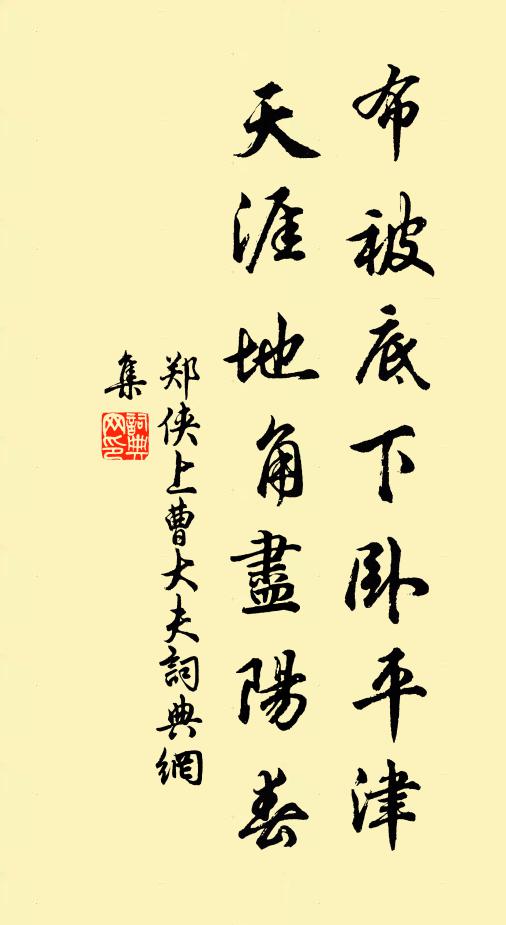 布被底下卧平津
天涯地角盡陽春
郑侠上曹大夫詞典網
集
詞典网印